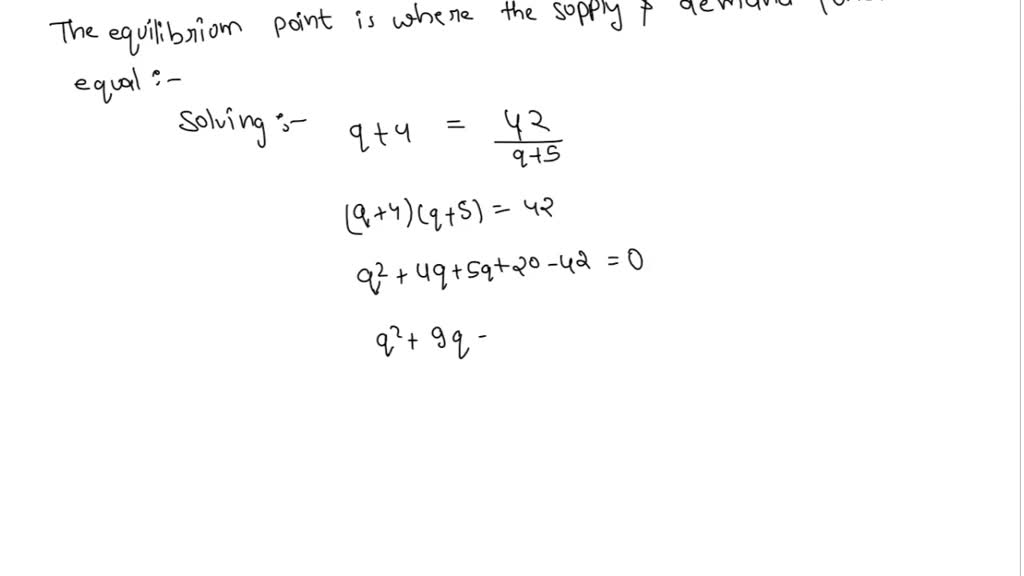 The equilibriom point is where the supply & demand
equal :-
Solving :- q+4 = 42/(q+5)
(q+4)(q+5) = 42
q² + 4q + 5q + 20 - 42 = 0
q² + 9q -